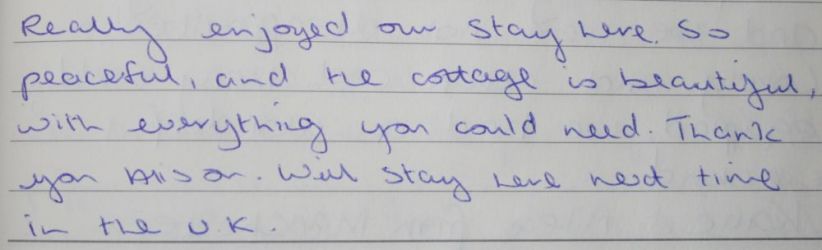 Really enjoyed our stay here. So
peaceful, and the cottage is beautiful,
with everything you could need. Thank
you Alison. Will stay here next time
in the U.K.